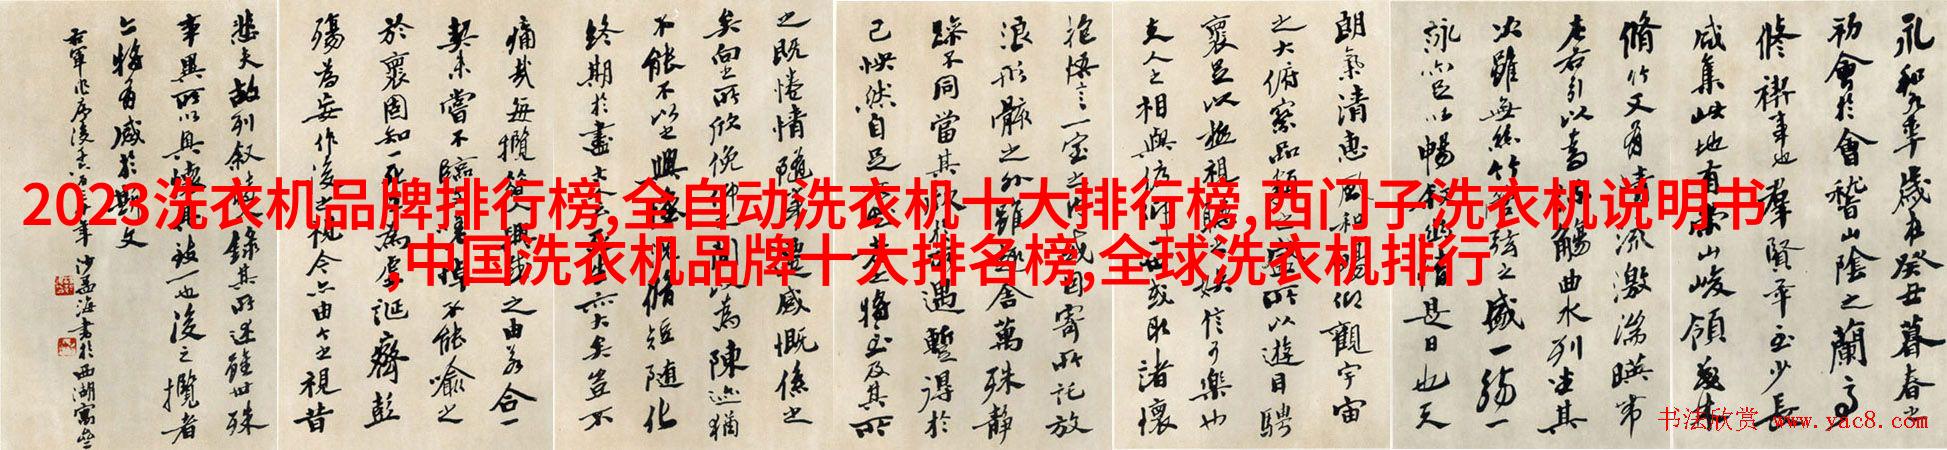 2023洗衣机品牌排行榜,全自动洗衣机十大排行榜,西门子洗衣机说明书
,中国洗衣机品牌十大排名榜,全球洗衣机排行
永和九年歲在癸丑暮春之
初會於會稽山陰之蘭亭
修禊事也羣賢畢至少長
咸集此地有崇山峻領茂林
脩竹又有清流激湍暎帶
左右引以為流觴曲水列坐其
次雖無絲竹管弦之盛一觴一
詠亦足以暢敘幽情是日也天
朗氣清惠風和暢仰觀宇宙
之大俯察品類之盛所以遊目騁
懷足以極視聽之娛信可樂也
夫人之相與俯仰一世或取諸懷
抱悟言一室之內或因寄所託放
浪形骸之外雖趣舍萬殊靜
躁不同當其欣於所遇暫得於
己怏然自足不知老之將至及其所
之既惓情隨事遷感慨係之
矣向之所欣俛仰之間以為陳迹猶
不能不以之興懷況脩短隨化
終期於盡古人云死生亦大矣豈不
痛哉每攬昔人興感之由若合一
契未嘗不臨文嗟悼不能喻之
於懷固知一死生為虛誕齊彭
殤為妄作後之視今亦由今之視昔
悲夫故列敘時人錄其所述雖世殊
事異所以興懷其致一也後之攬者
亦將有感於斯文
右軍作序 年 沙孟海書於西湖寓
书法欣赏 www.yac8.com